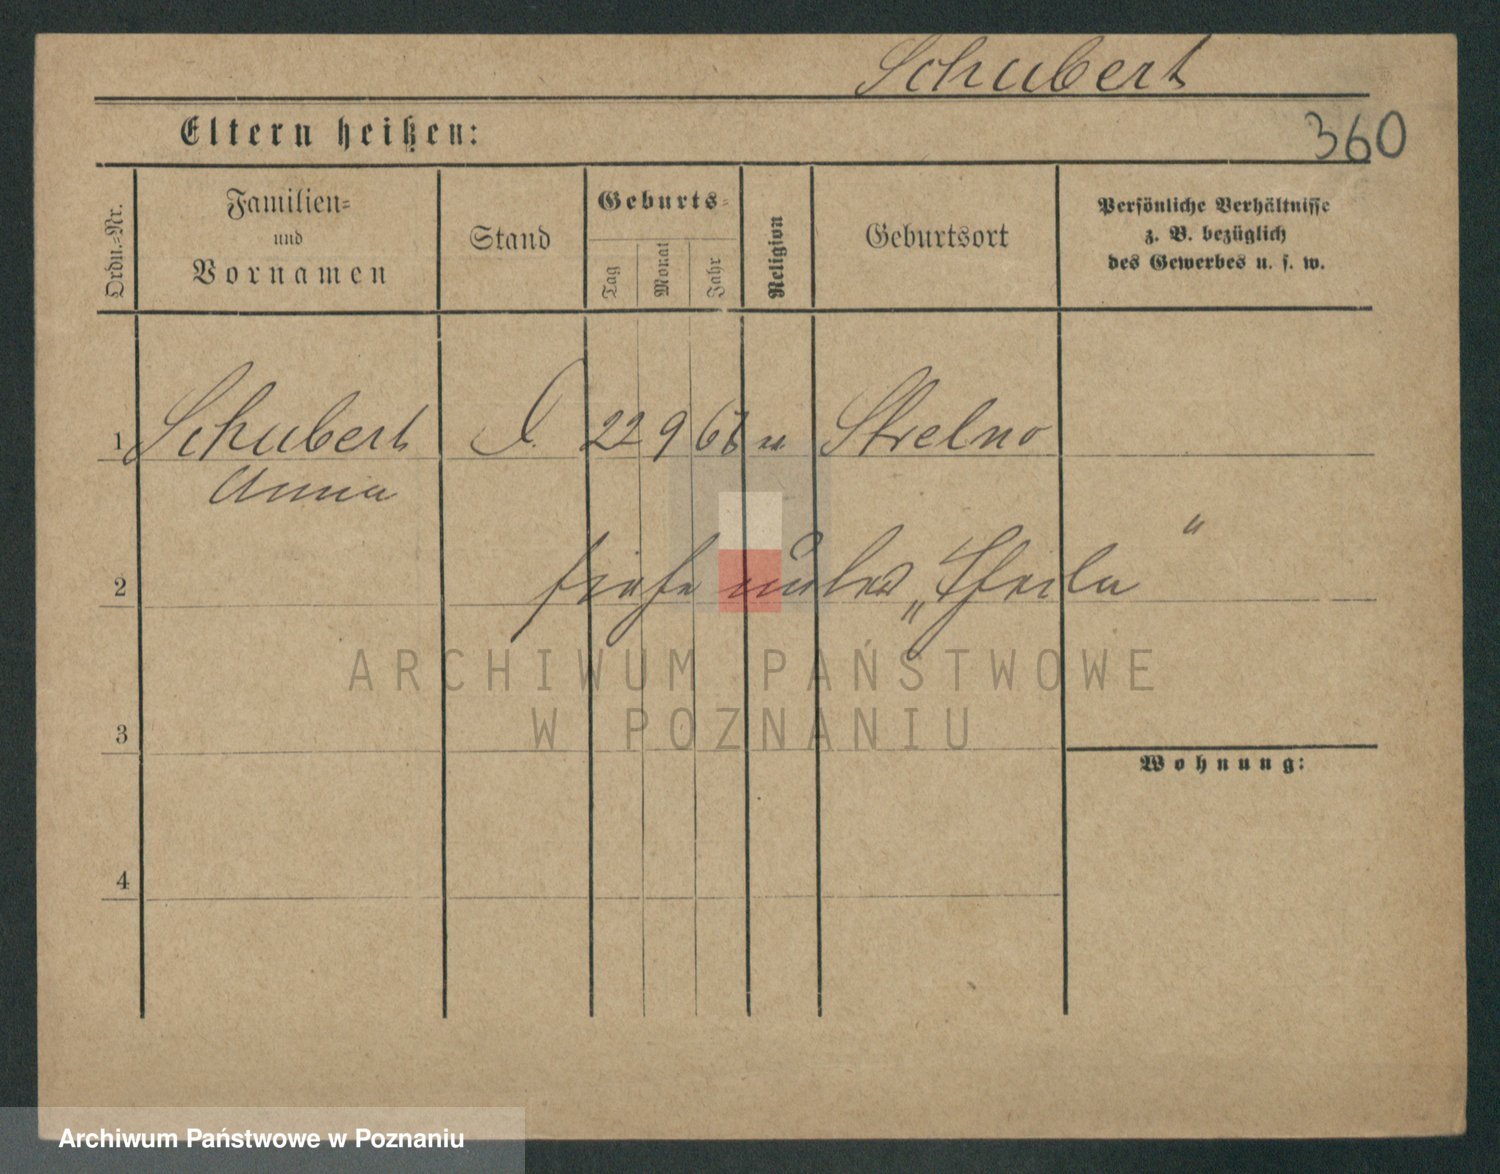 Schubert
Eltern heißen:
360
Ordn.=Nr.
Familien=
und
Vornamen
Stand
Geburts=
Tag
Monat
Jahr
Religion
Geburtsort
Persönliche Verhältnisse
z. B. bezüglich
des Gewerbes u. s. w.
1 Schubert 22 9 Strelno
Anna
2 siehe unter „Theila“
3
Wohnung:
4
ARCHIWUM PAŃSTWOWE
W POZNANIU
Archiwum Państwowe w Poznaniu